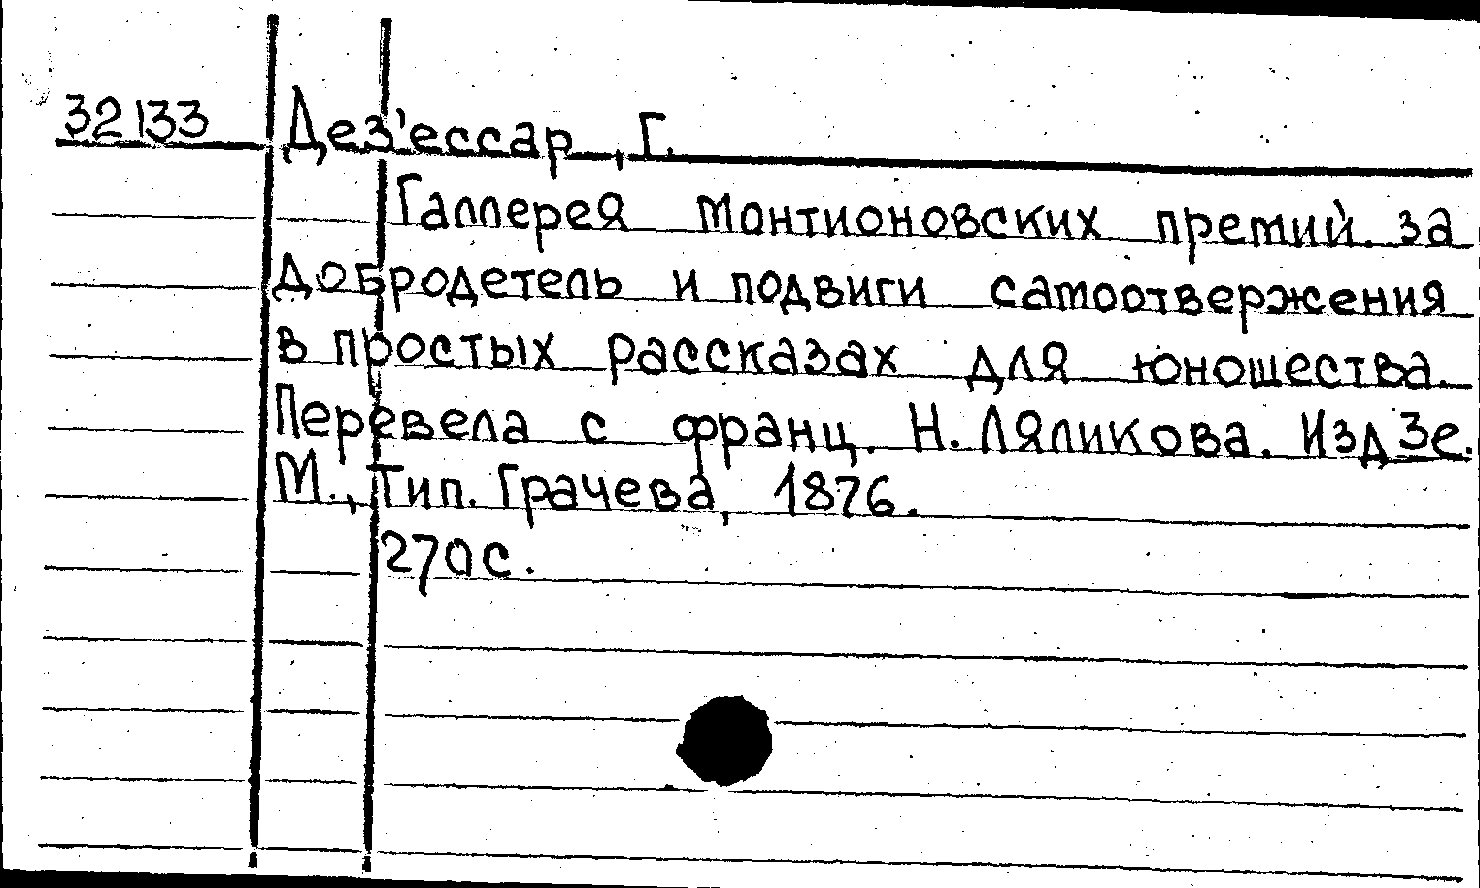 32133 Дез'ессар, Г.
Галлерея монтионовских премий за
добродетель и подвиги самоотвержения
в простых рассказах для юношества.
Перевела с франц. Н. Ляликова. Изд 3е.
М., Тип. Грачева, 1876.
270 с.